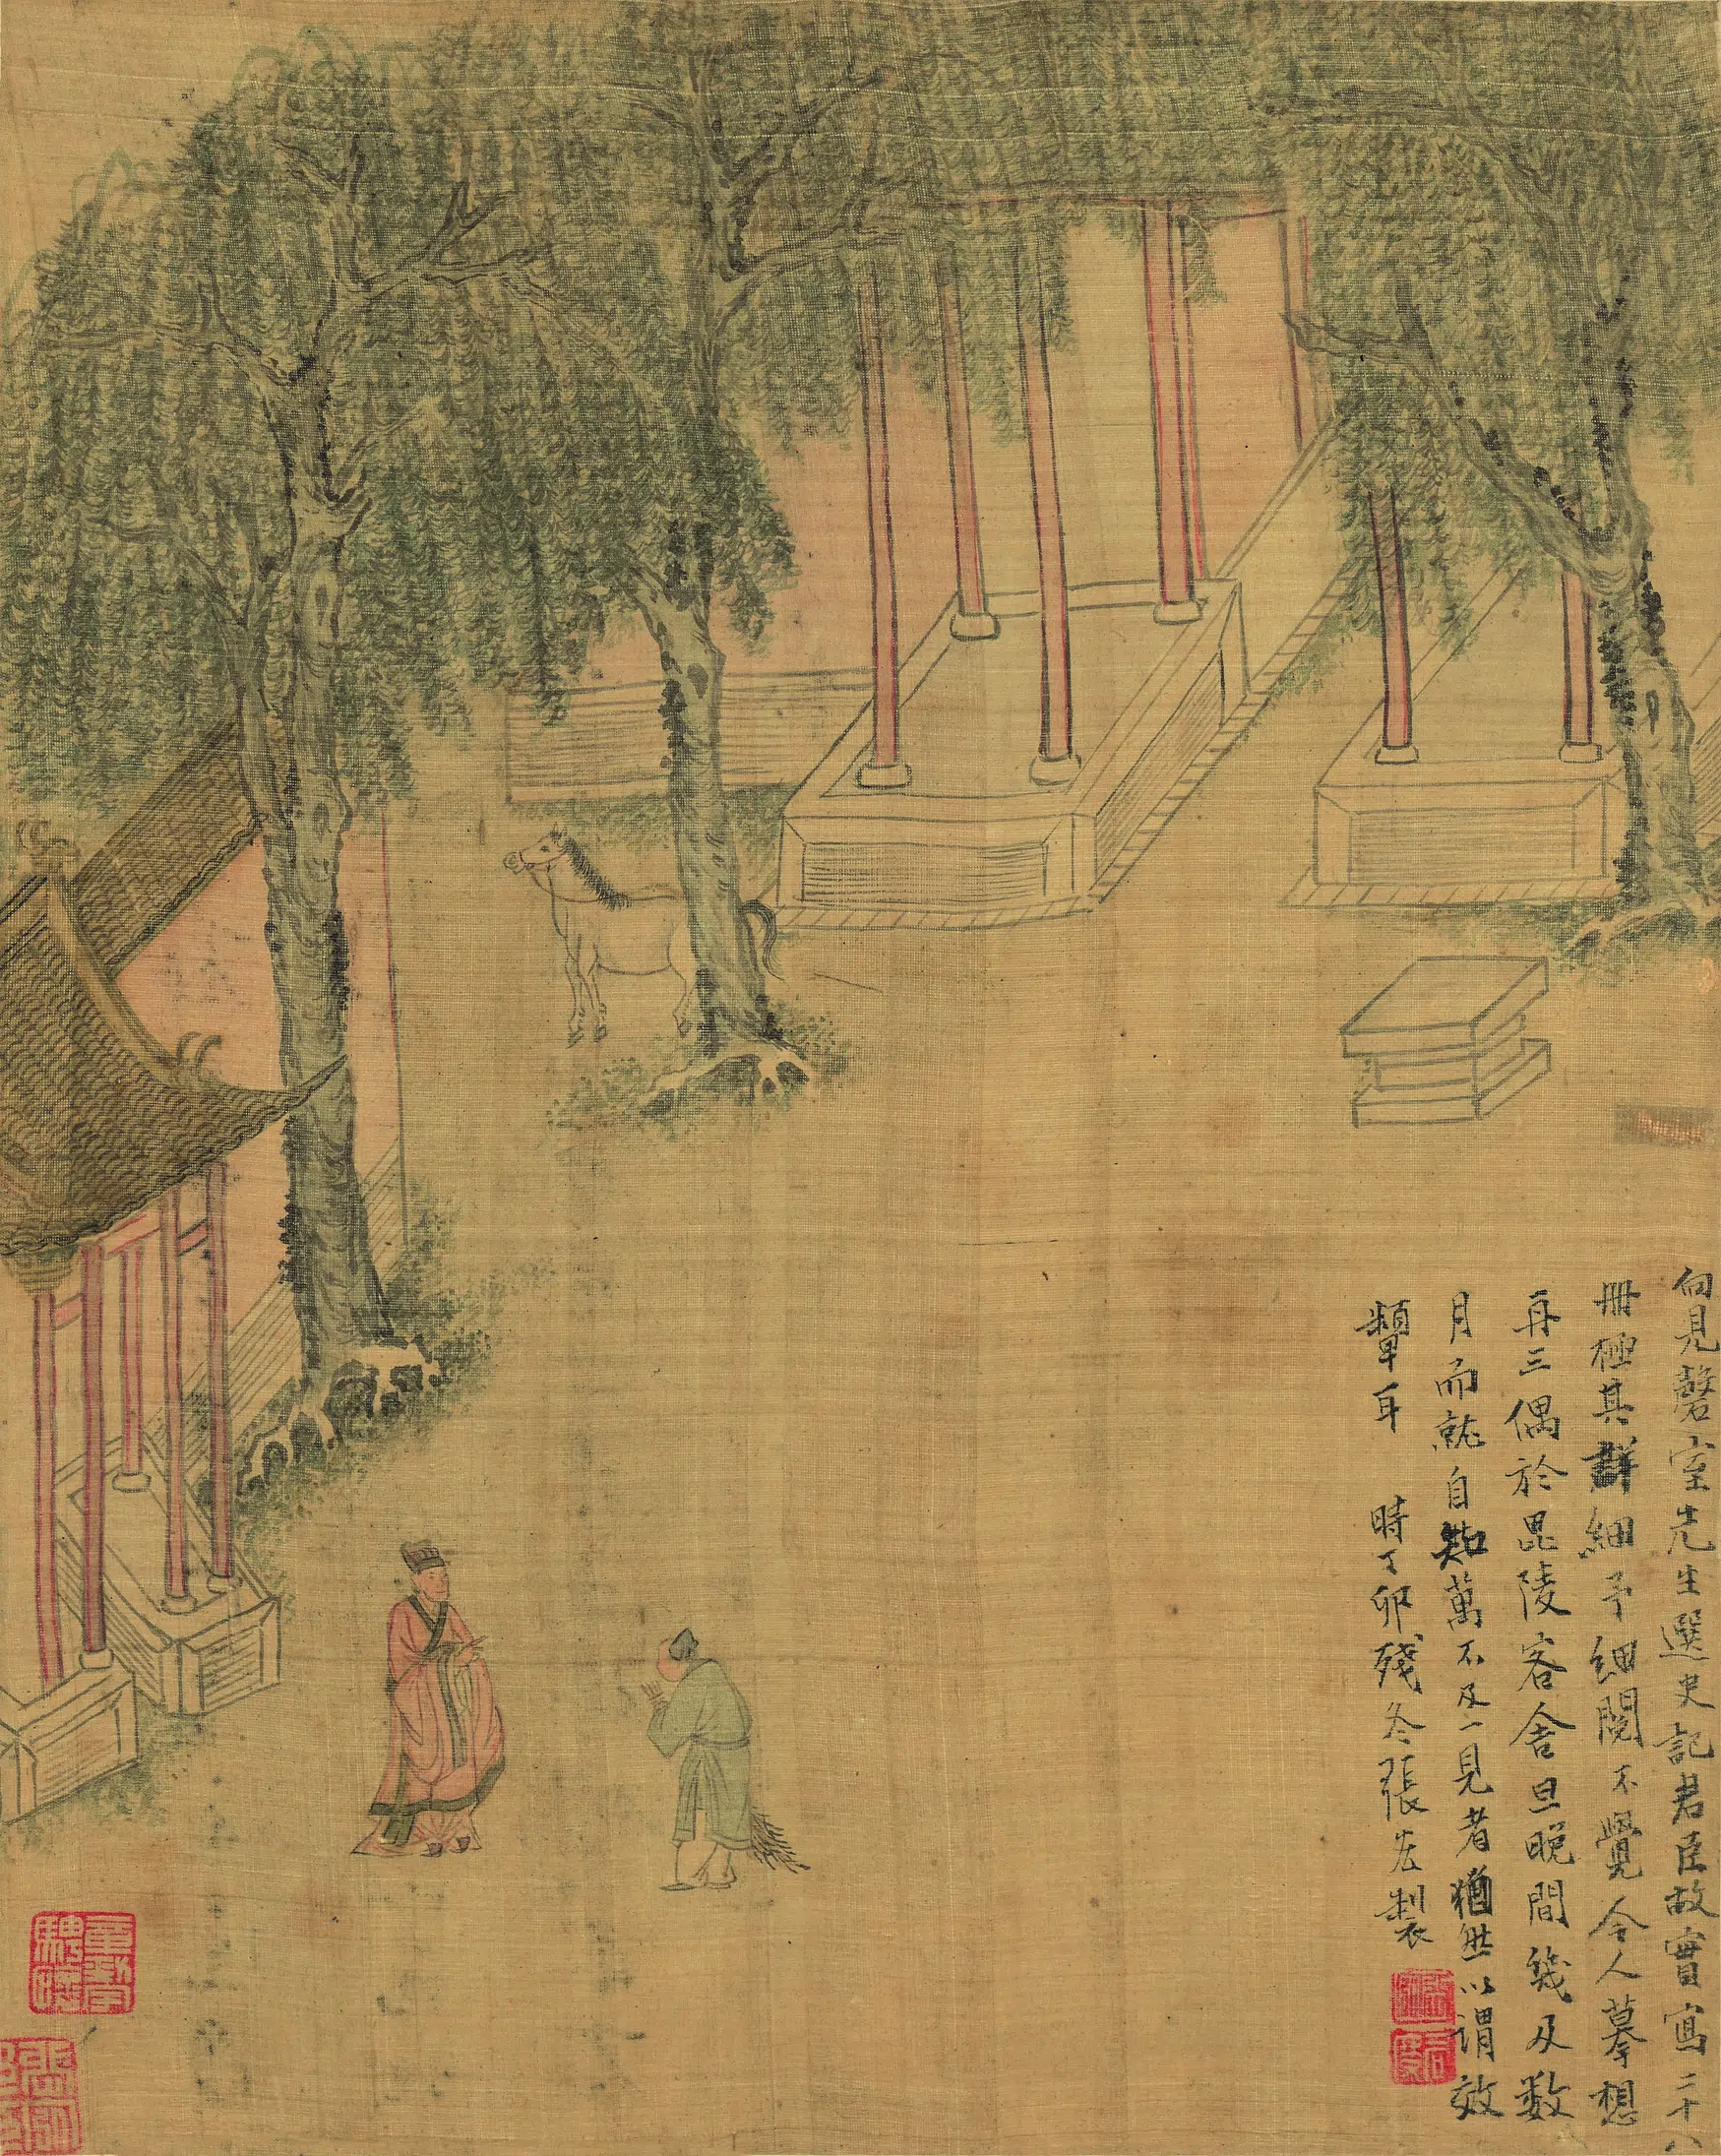 向見磬室先生選史記君臣故實寫二十八
冊極其詳細予細閱不覺令人摹想
再三偶於毘陵客舍旦晚間幾及数
月而就自知萬不及一見者猶然以謂效
顰耳　時丁卯殘冬張宏製